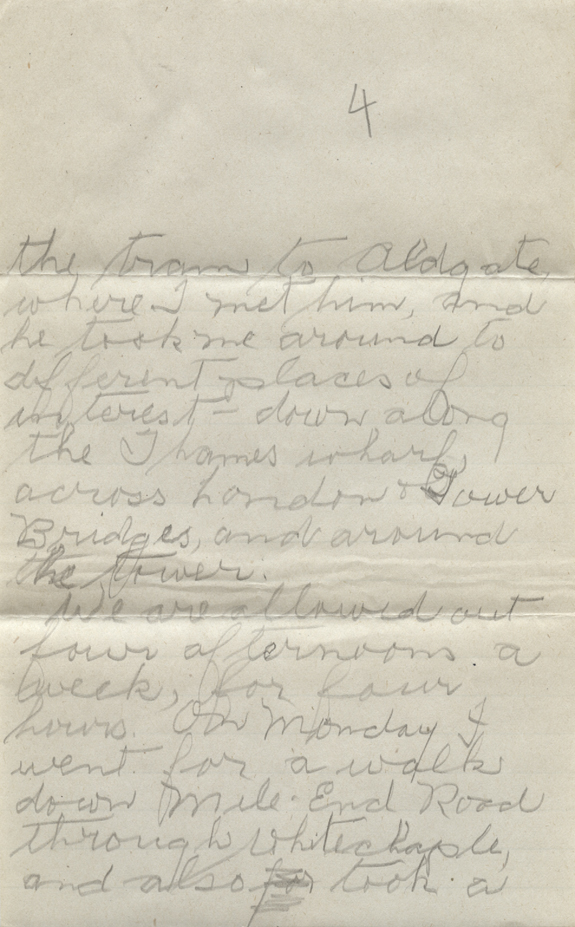 4
the tram to Aldgate,
where I met him, and
he took me around to
different places of
interest - down along
the Thames wharf,
across London & Tower
Bridges, and around
the tower.
We are allowed out
four afternoons a
week, for four
hours. On Monday I
went for a walk
down Mile-End Road
through Whitechaple,
and also took a